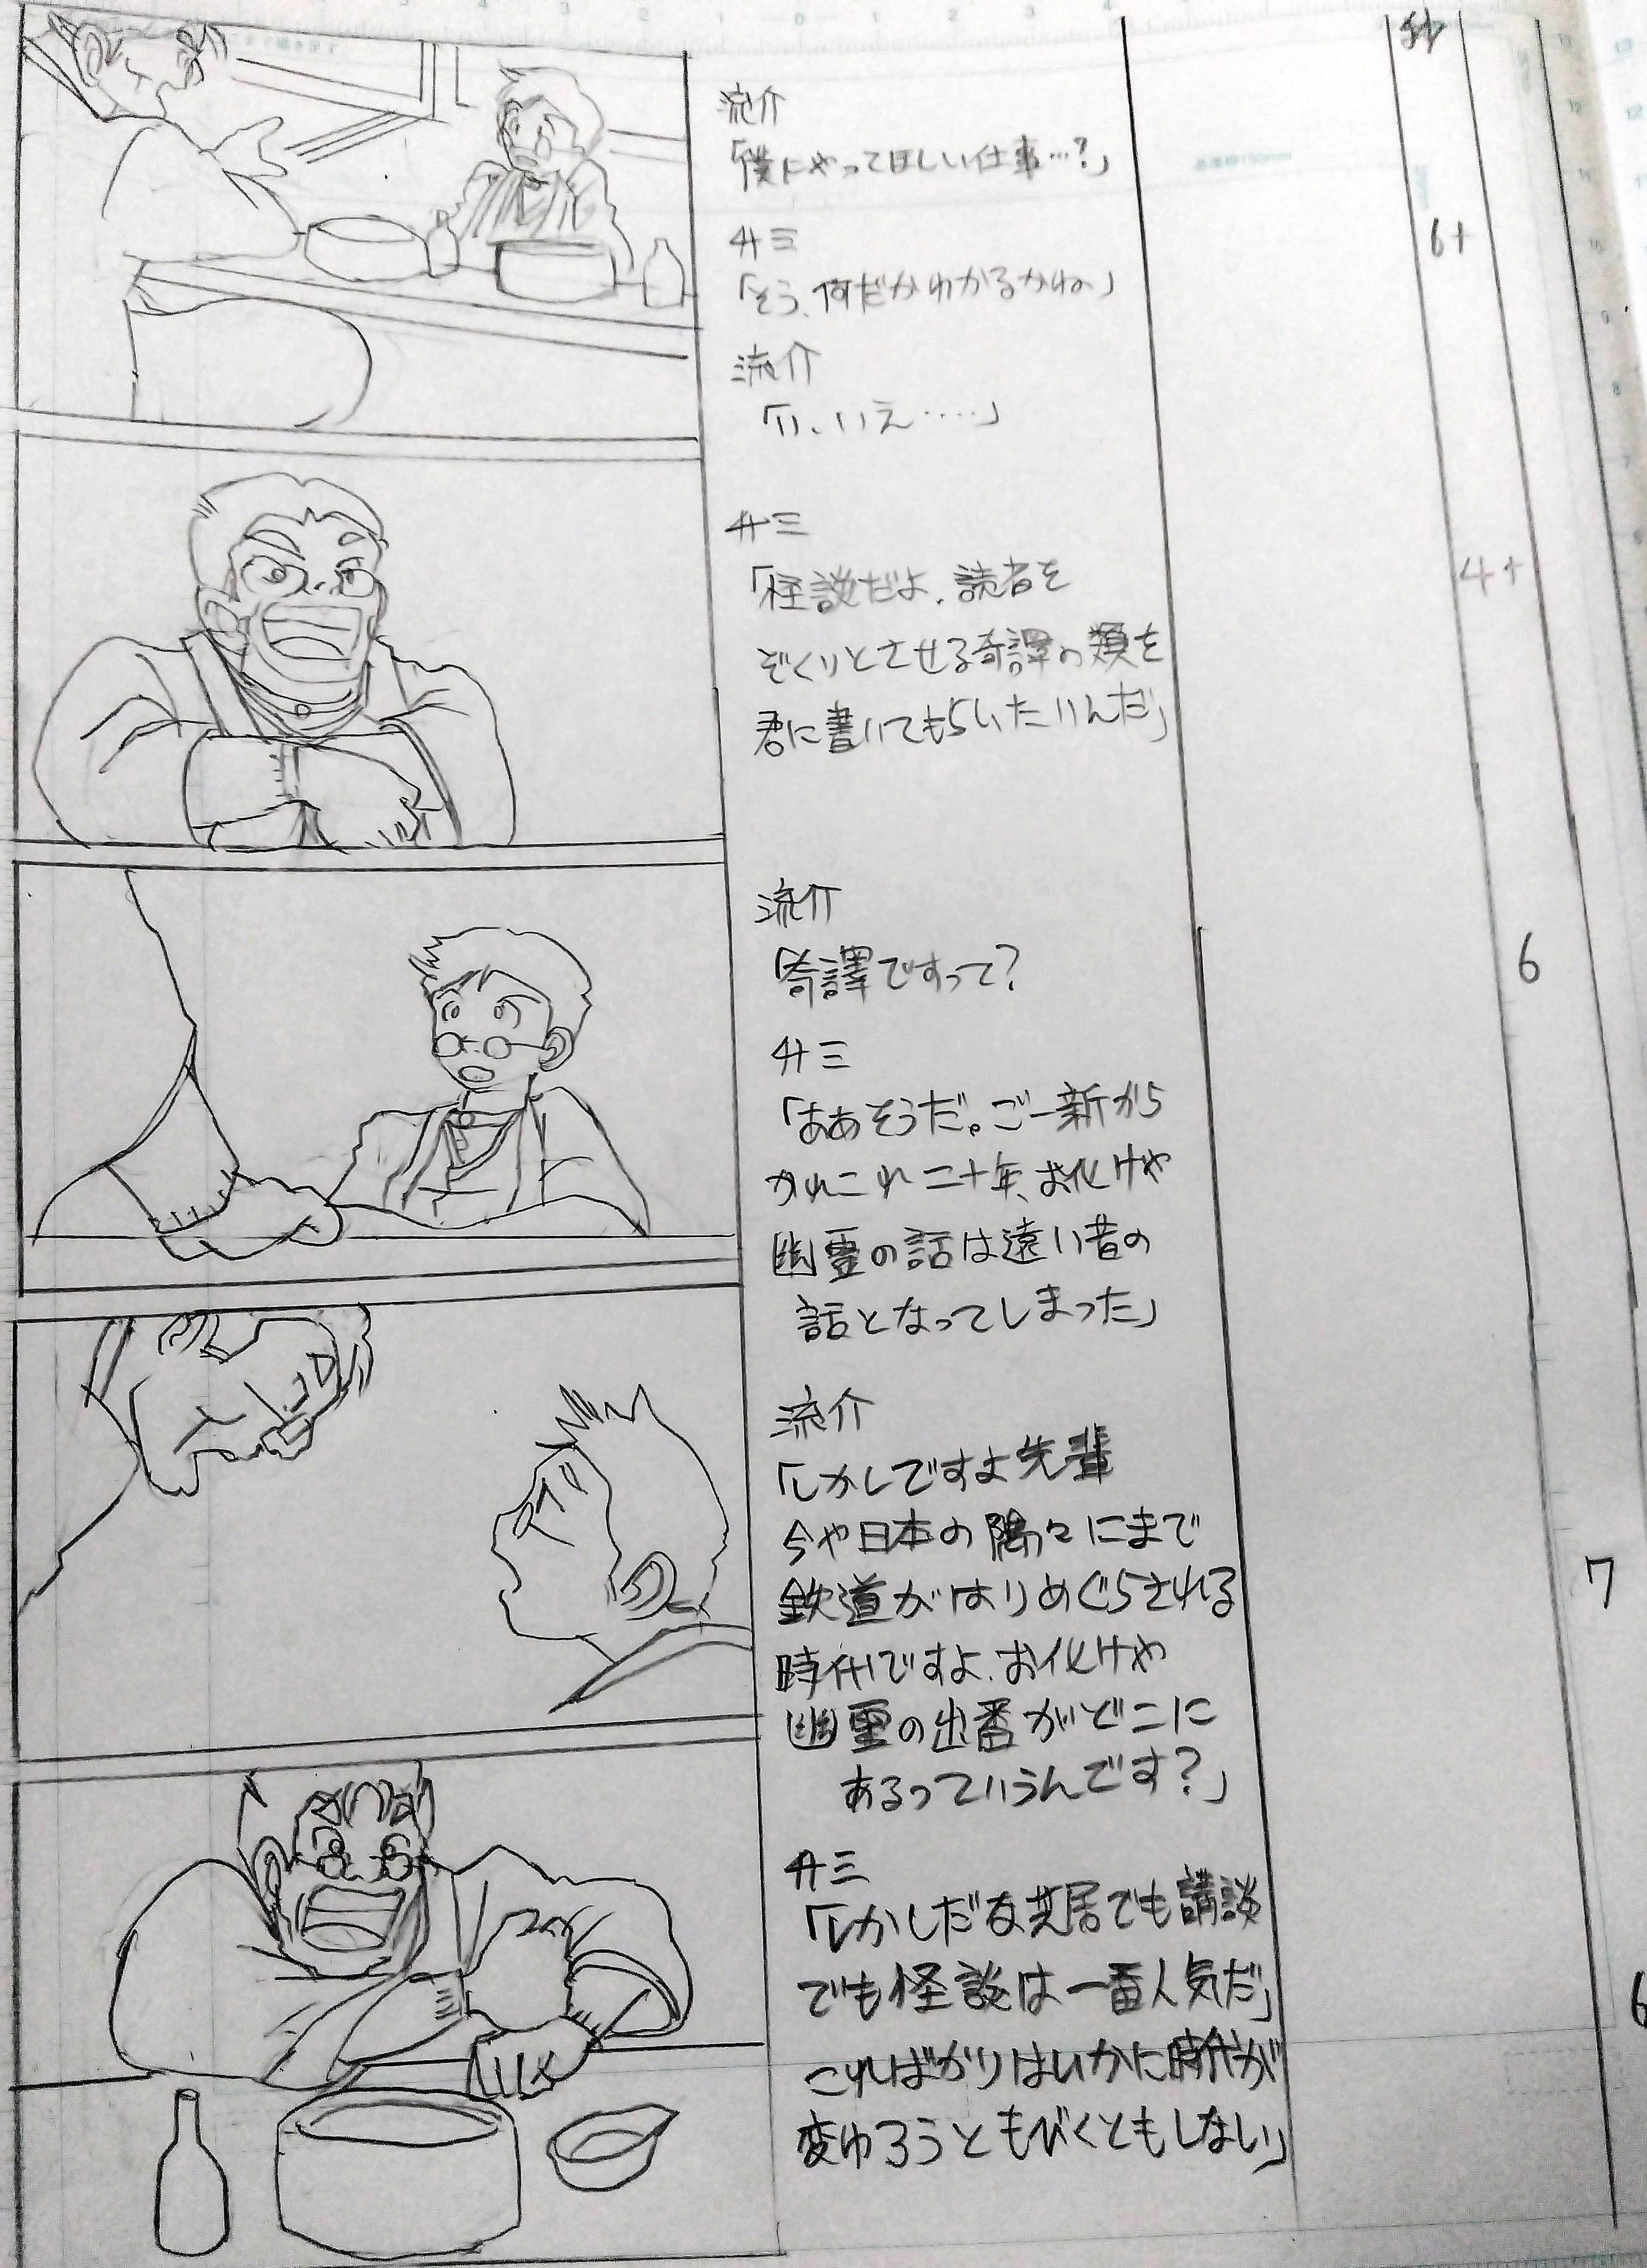 秒
流介
「僕にやってほしい仕事…?」
升三
「そう、何だかわかるかね」
6+
流介
「い、いえ‥‥」
升三
「怪談だよ、読者を
ぞくりとさせる奇譚の類を
君に書いてもらいたいんだ」
4+
流介
「奇譚ですって?
6
升三
「ああそうだ。ご一新から
かれこれ二十年、お化けや
幽霊の話は遠い昔の
話となってしまった」
流介
「しかしですよ先輩
今や日本の隅々にまで
鉄道がはりめぐらされる
時代ですよ、お化けや
幽霊の出番がどこに
あるっていうんです?」
7
升三
「しかしだな芝居でも講談
でも怪談は一番人気だ」
こればかりはいかに時代が
変わろうともびくともしない」
6